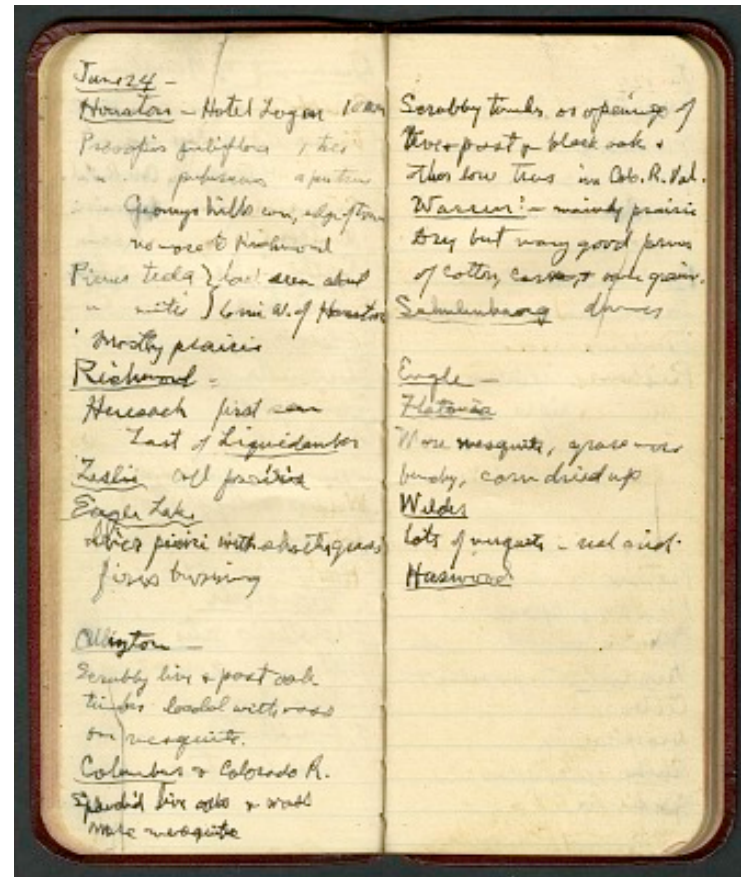 June 24 -
Houston - Hotel Logan 10 am
Prosopis juliflora
" pubescens
Geomys hills
no more to Richmond
Pinus teda } last seen about
" mitis } 6 mi W. of Houston
Mostly prairie
Richmond -
Huisach first seen
Last of Liquidamber
Leslie all prairie
Eagle Lake
prairie with short grass
fires burning
Allington -
Scrubby live & post oak
timber loaded with moss
mesquite.
Columbus & Colorado R.
Splendid live oaks & moss
more mesquite
Scrubby timber or openings of
live & post & black oak &
other low trees in Col. R. Val.
mainly prairie
Dry but very good
of cotton, corn, & some grain.
Schulenburg
Engle -
Flatonia
More mesquite, grass more
bunchy, corn dried up
Wilder
Lots of mesquite - real arid.
Harwood